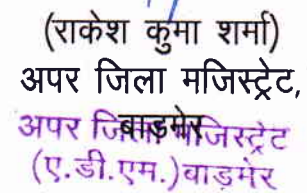 (राकेश कुमा शर्मा)
अपर जिला मजिस्ट्रेट,
बाड़मेर
अपर जिला मजिस्ट्रेट
(ए.डी.एम.)बाड़मेर